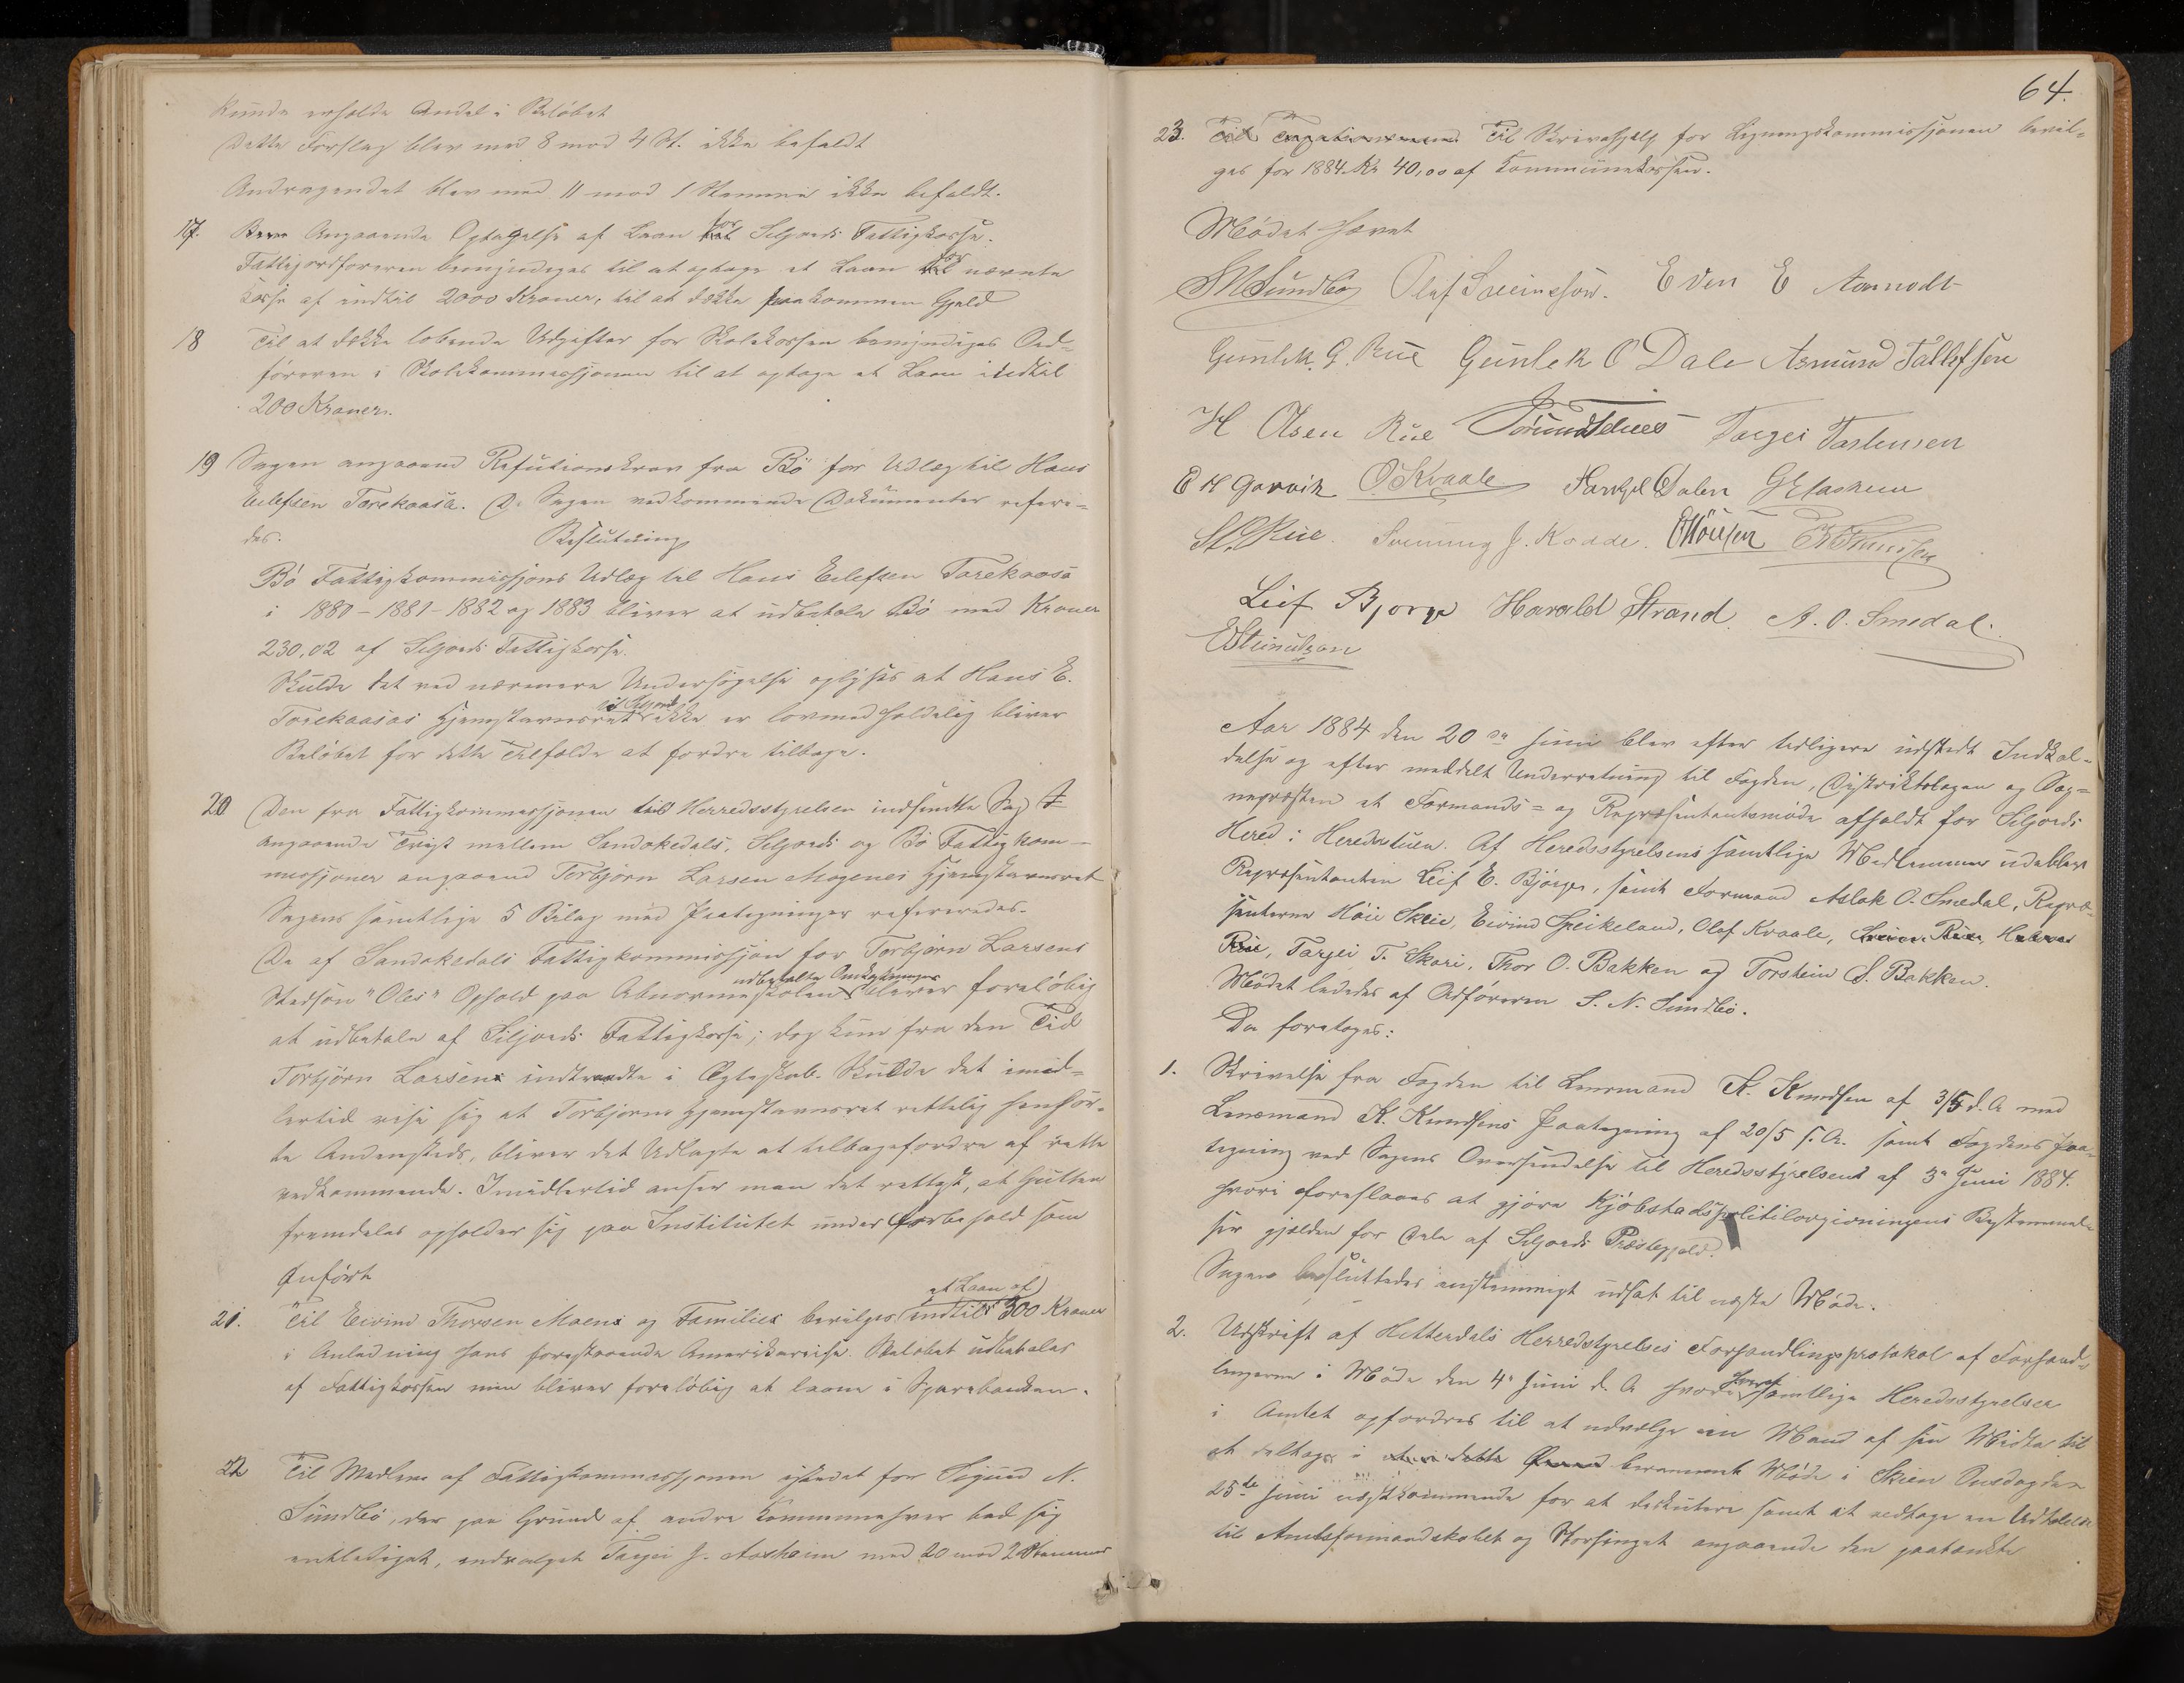 kunde erholde Andel i Beløbet
Dette Forslag blev med 8 mod 4 St. ikke bifaldt
Andragendet blev med 11 mod 1 Stemme ikke bifaldt.
17. Angaaende Optagelse af Laan for Seljords Fattigkasse.
Fattigordføreren bemyndiges til at optage et Laan for nævnte
Kasse af indtil 2000 Kroner, til at dække paakommen Gjæld
18 Til at dække løbende Udgifter for Skolekassen bemyndiges Ord-
føreren i Skolekommissjonen til at optage et Laan indtil
200 Kroner.
19 Sagen angaaend Refutionskrav fra Bø for Udlæg til Hans
Eilefsen Torekaasa. De Sagen vedkommende Dokumenter refere-
des. Beslutning
Bø Fattigkommissjons Udlæg til Hans Eilefsen Torekaasa
i 1880 - 1881 - 1882 og 1883 bliver at udbetale Bø med Kroner
230,02 af Seljords Fattigkasse.
Skulde det ved nærmere Undersøgelse oplyses at Hans E.
Torekaasas Hjemstavnsret i Seljord ikke er lovmedholdelig bliver
Beløbet for dette Tilfælde at fordre tilbage.
20 Den fra Fattigkommissjonen til Herredsstyrelsen indsendte Sag
angaaende Tvist mellem Sandøkedals, Seljords og Bø Fattigkom-
missjoner angaaend Torbjørn Larsen Mogenes Hjemstavnsret
Sagens samtlige 5 Bilag med Paategninger refereredes.
De af Sandøkedals Fattigkommissjon for Torbjørn Larsens
Stedsøn "Oles" Ophold paa Abnormeskolen udbetalte Omkostninger bliver foreløbig
at udbetale af Siljords Fattigkasse; dog kun fra den Tid
Torbjørn Larsen indtraadte i Ægteskab. Skulde det imid-
lertid vise sig at Torbjørns Hjemstavnsret rettelig henhør-
te Andensteds, bliver det Udlagte at tilbagefordre af rette
vedkommende. Imidlertid anser man det rettest, at Gutten
fremdeles opholder sig paa Institutet under Forbehold som
Anført
21. Til Eivind Thorsen Moens og Familie bevilges et Laan af indtil 300 Kroner
i Anledning hans forestaaende Amerikareise. Beløbet udbetales
af Fattigkassen men bliver foreløbig at laane i Sparebanken.
22 Til Medlem af Fattigkommissjonen istedet for Sigurd N.
Sundbø, der paa Grund af andre Kommunehverv bad sig
entlediget, indvalgtes Targei J. Aasheim med 20 mod 2 Stemmer
64.
23. Til Taxationsmænd Til Skrivehjælp for Ligningskommissjonen bevil-
ges for 1884 Kr 40,00 af Kommunekassen.
Mødet hævet
SNSundbø Olaf Sveinsson. Even E Aamodt
Gunlek. G. Rue Gunlek O Dale Asmund Tallefsen
H Olsen Rue Targei Tarkensen
E H Garvik O Kvaale Tarkjel Dalen
S. O. Rue. Sveinung J. Kodde.
Leif Bjørge Harald Strand. A. O. Smedal.
ESteinulson
Aar 1884 den 20de Juni blev efter tidligere udstedt Indkal-
delse og efter meddelt Underretning til Fogden, Distriktslægen og Sog-
nepræsten et Formands- og Repræsentantmøde afholdt for Seljords
Hered i Heredsstuen. Af Heredsstyrelsens samtlige Medlemmer udeblev
Repræsentanten Leif E. Bjørge, samt Formand Aslak O. Smedal, Repræ-
santerne Høie Skeie, Eivind Speikeland, Olaf Kvaale, Svein Rue, Halvor
Rue, Targei T. Skori, Thor O. Bakken og Torstein S. Bakken.
Mødet lededes af Ordføreren S. N. Sundbø.
Da foretoges:
1. Skrivelse fra Fogden til Lensmand K. Knudsen af 3/5 d. A. med
Lensmand K. Knudsens Paategning af 20/5 s. A. samt Fogdens Paa-
tegning ved Sagens Oversendelse til Heredsstyrelsen af 3de Juni 1884.
hvori foreslaaes at gjøre Kjøbstadspolitilovgivningens Bestemmel-
ser gjælden for Dele af Seljords Præstegjæld.
Sagen besluttedes enstemmigt udsat til næste Møde.
2. Udskrift af Hitterdals Herredsstyrelses Forhandlingsprotokol af Forhand-
lingerne i Møde den 4de Juni d. A. hvorved samtlige Heredsstyrelser
i Amtet opfordres til at udvælge en Mand af sin Midte til
at deltage i et i dette Øiemed berammet Møde i Skien Onsdag den
25de Juni næstkommende for at diskutere samt at vedtage en Udtalelse
til Amtsformandskabet og Storthinget angaaende den paatænkte